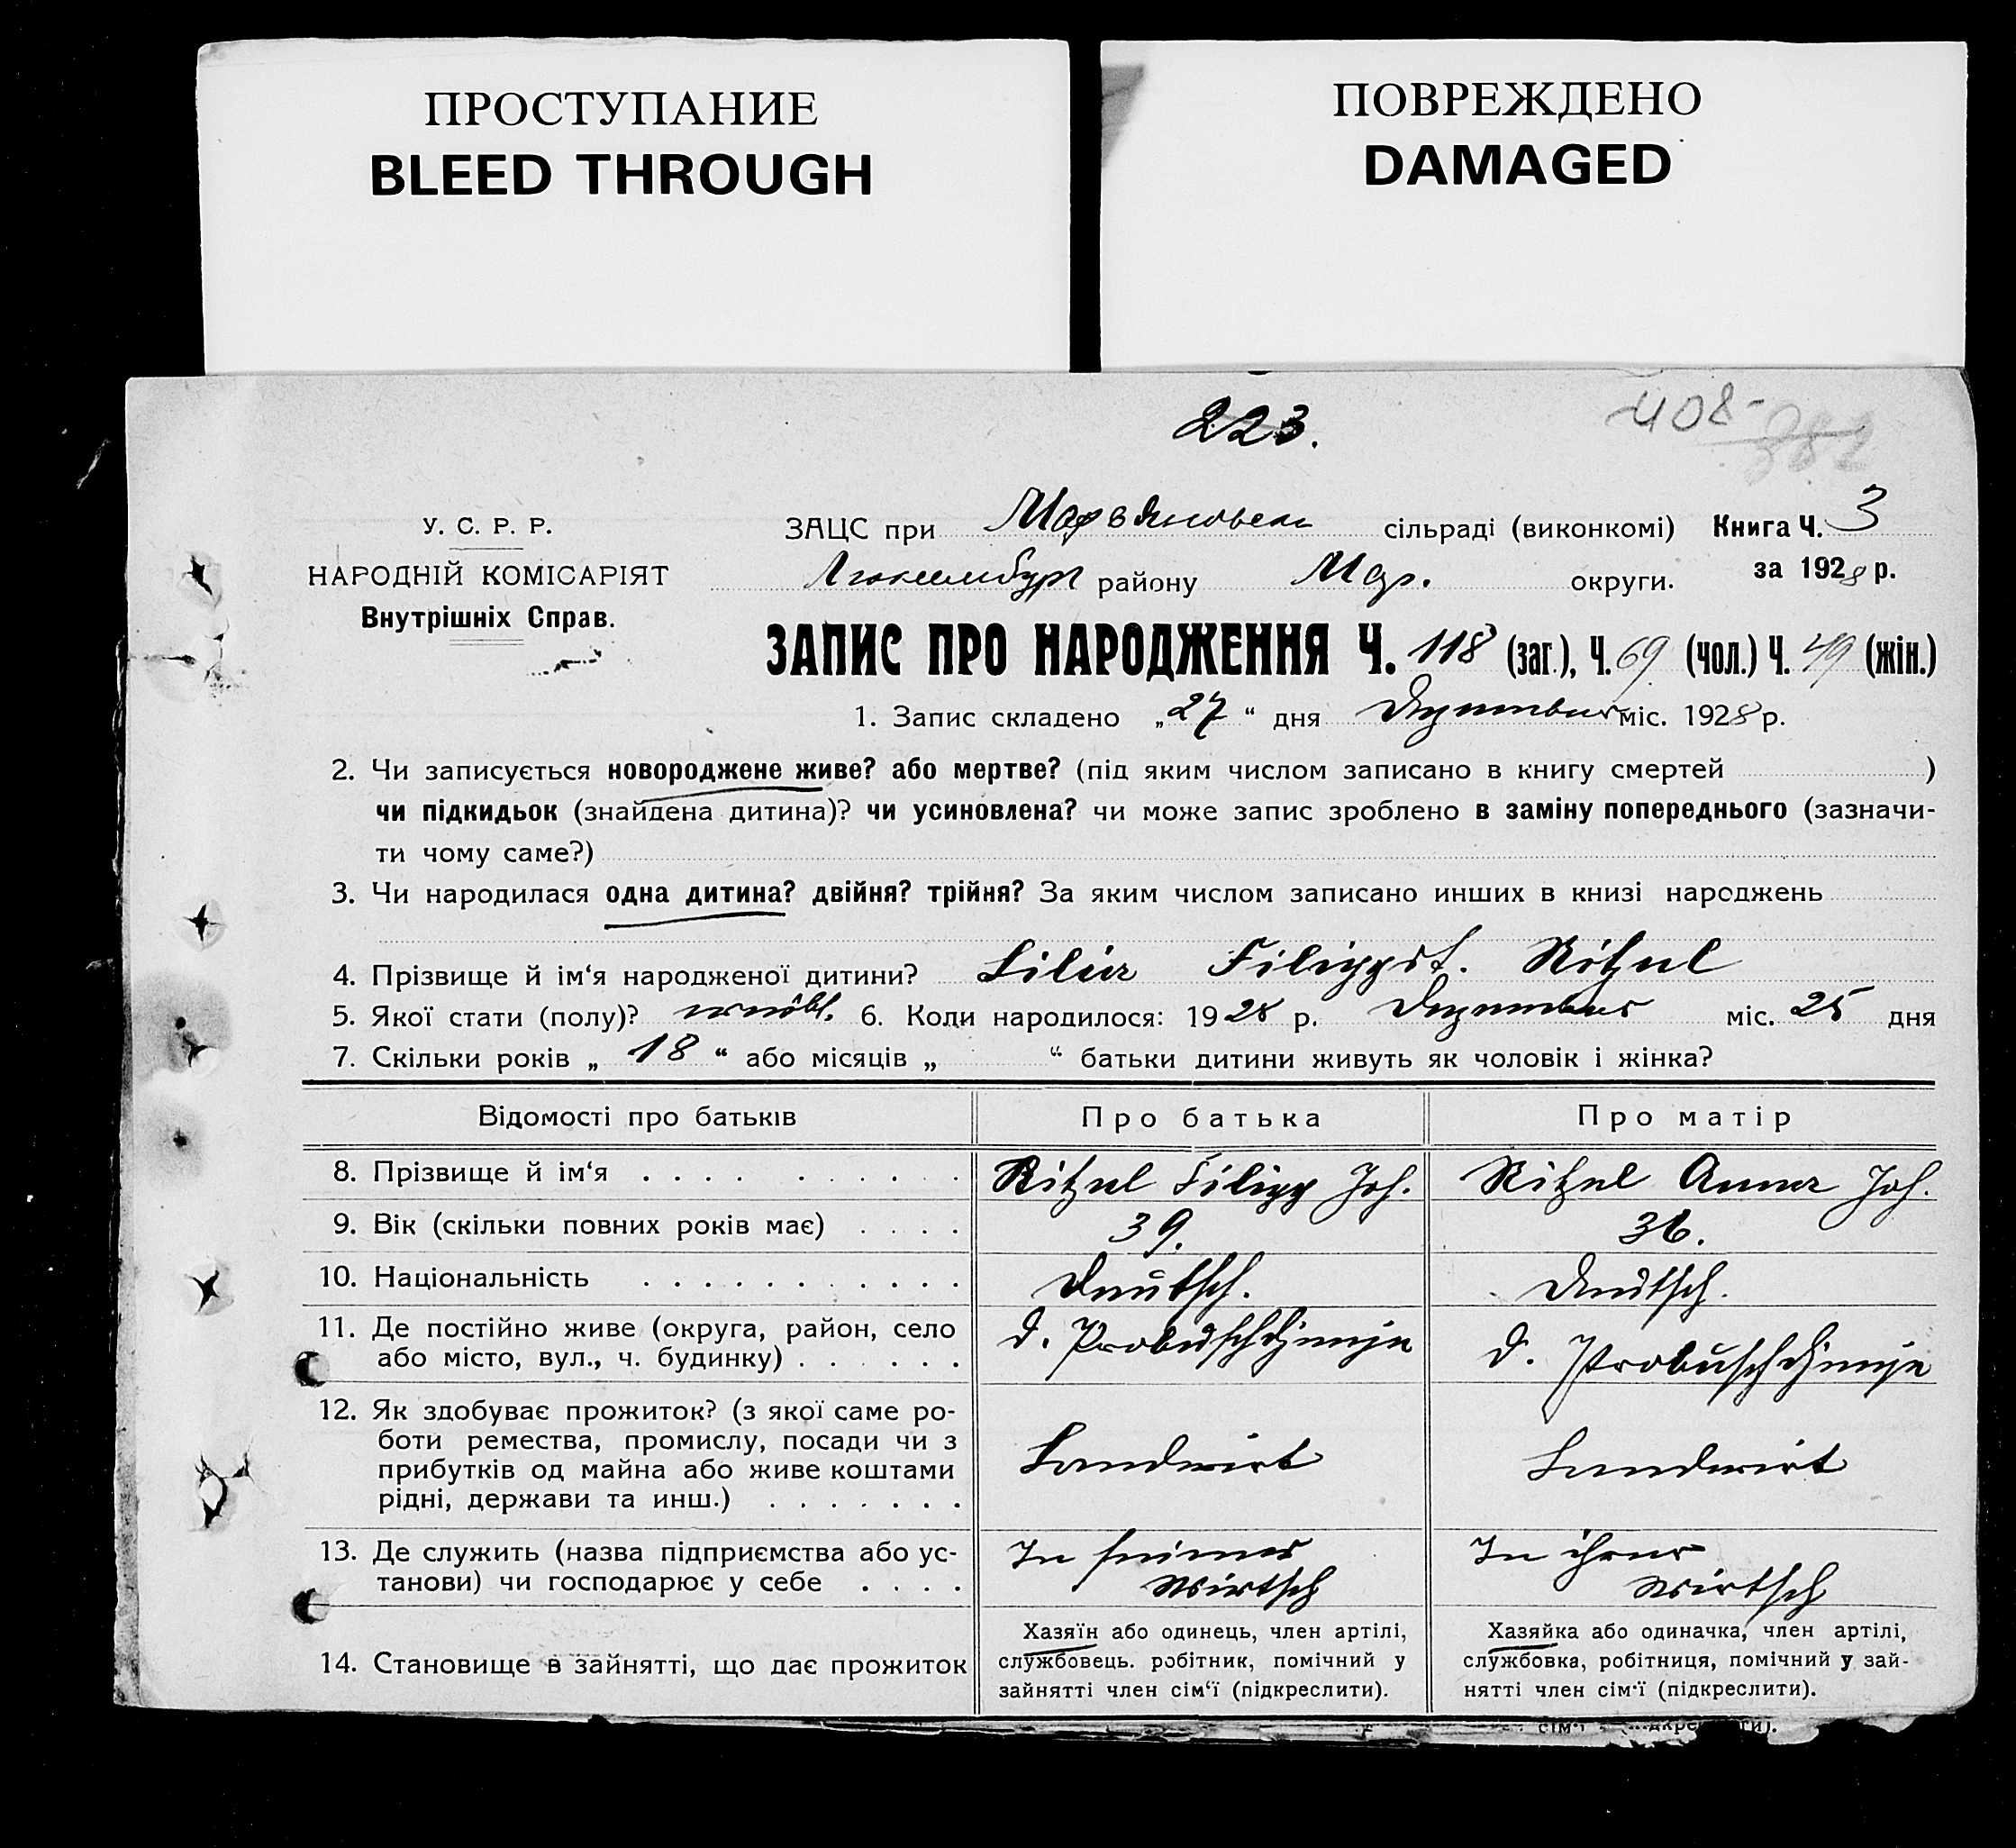 ПРОСТУПАНИЕ
BLEED THROUGH
ПОВРЕЖДЕНО
DAMAGED
223.
408-
382
У. С. Р. Р.
НАРОДНІЙ КОМІСАРІЯТ
Внутрішніх Справ.
ЗАЦС при сільраді (виконкомі) Книга Ч. 3
Люксембург району Мар. округи. за 1928 р.
ЗАПИС ПРО НАРОДЖЕННЯ Ч. 118 (заг.), Ч. 69 (чол.) Ч. 49 (жін.)
1. Запис складено „27“ дня Dezember міс. 1928 р.
2. Чи записується новороджене живе? або мертве? (під яким числом записано в книгу смертей )
чи підкидьок (знайдена дитина)? чи усиновлена? чи може запис зроблено в заміну попереднього (зазначи-
ти чому саме?)
3. Чи народилася одна дитина? двійня? трійня? За яким числом записано инших в книзі народжень
4. Прізвище й ім‘я народженої дитини? Lilia Filippst. Ritzel
5. Якої стати (полу)? weibl. 6. Коли народилося: 1928 р. Dezember міс. 25 дня
7. Скільки років „ 18 “ або місяців „ “ батьки дитини живуть як чоловік і жінка?
Відомості про батьків Про батька Про матір
8. Прізвище й ім‘я Ritzel Filipp Joh. Ritzel Anna Joh.
9. Вік (скільки повних років має) 39. 36.
10. Національність Deutsch. Deutsch.
11. Де постійно живе (округа, район, село
або місто, вул., ч. будинку) D. Probuschdjenije D. Probuschdjenije
12. Як здобуває прожиток? (з якої саме ро-
боти ремества, промислу, посади чи з
прибутків од майна або живе коштами
рідні, держави та инш.) Landwirt Landwirt
13. Де служить (назва підприємства або ус-
танови) чи господарює у себе In seiner Wirtsch In ihrer Wirtsch
14. Становище в зайнятті, що дає прожиток
Хазяїн або одинець, член артілі,
службовець. робітник, помічний у
зайнятті член сім‘ї (підкреслити).
Хазяйка або одиначка, член артілі,
службовка, робітниця, помічний у зай-
нятті член сім‘ї (підкреслити).